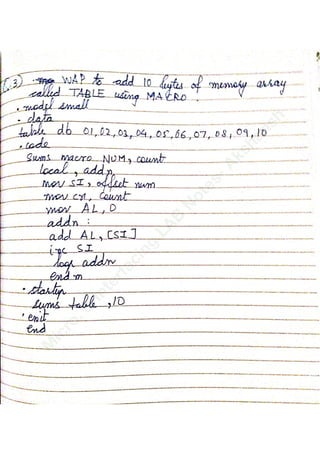 Q.3) WAP to add 10 bytes of memory array
called TABLE using MACRO.
.model small
.data
table db 01,02,03,04,05,06,07,08,09,10
.code
Sums macro NUM, count
local, addn
mov SI, offset num
mov cx, count
mov AL, 0
addn :
add AL, [SI]
inc SI
loop addn
endm
.startup
sums table ,10
.exit
end